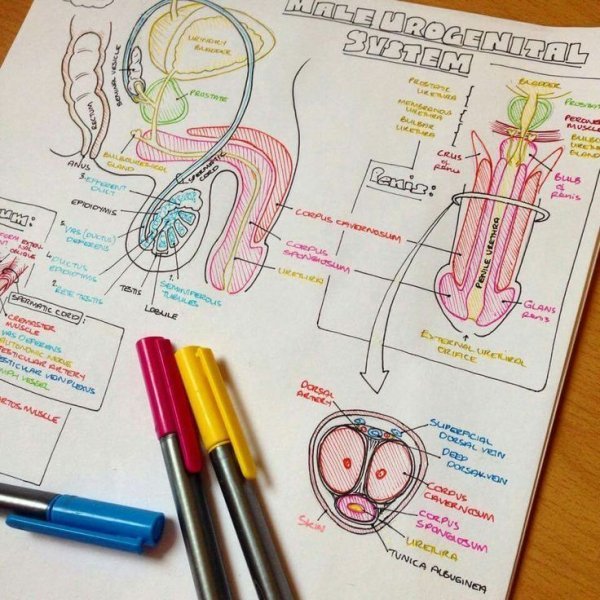 MALE UROGENITAL
SYSTEM
URINARY
BLADDER
SEMINAL VESICLE
RECTUM
PROSTATE
ANUS
BULBOURETHRAL
GLAND
SPERMATIC
CORD
3. EFFERENT
DUCT
EPIDIDYMIS
5. VAS (DUCTUS)
DEFERENS
4. DUCTUS
EPIDIDYMIS
2. RETE TESTIS
TESTIS
LOBULE
1. SEMINIFEROUS
TUBULES
CORPUS CAVERNOSUM
CORPUS
SPONGIOSUM
URETHRA
PROSTATIC
URETHRA
MEMBRANOUS
URETHRA
BULBAR
URETHRA
CRUS
OF
PENIS
Penis:
BLADDER
PROSTATE
MUSCLE
GLAND
BULB
OF
PENIS
PENILE URETHRA
GLANS
PENIS
EXTERNAL URETHRAL
ORIFICE
SPERMATIC CORD:
CREMASTER
MUSCLE
VAS DEFERENS
AUTONOMIC NERVE
TESTICULAR ARTERY
TESTICULAR VEIN PLEXUS
VESSEL
MUSCLE
DORSAL
ARTERY
SUPERFICIAL
DORSAL VEIN
DEEP
DORSAL VEIN
CORPUS
CAVERNOSUM
CORPUS
SPONGIOSUM
URETHRA
TUNICA ALBUGINEA
SKIN